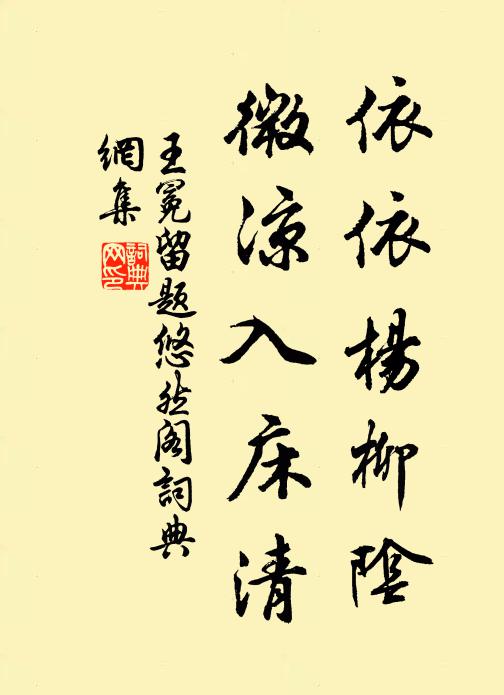 依依楊柳陰
微涼入床清
王冕留題悠然阁詞典
網集
詞典
网印